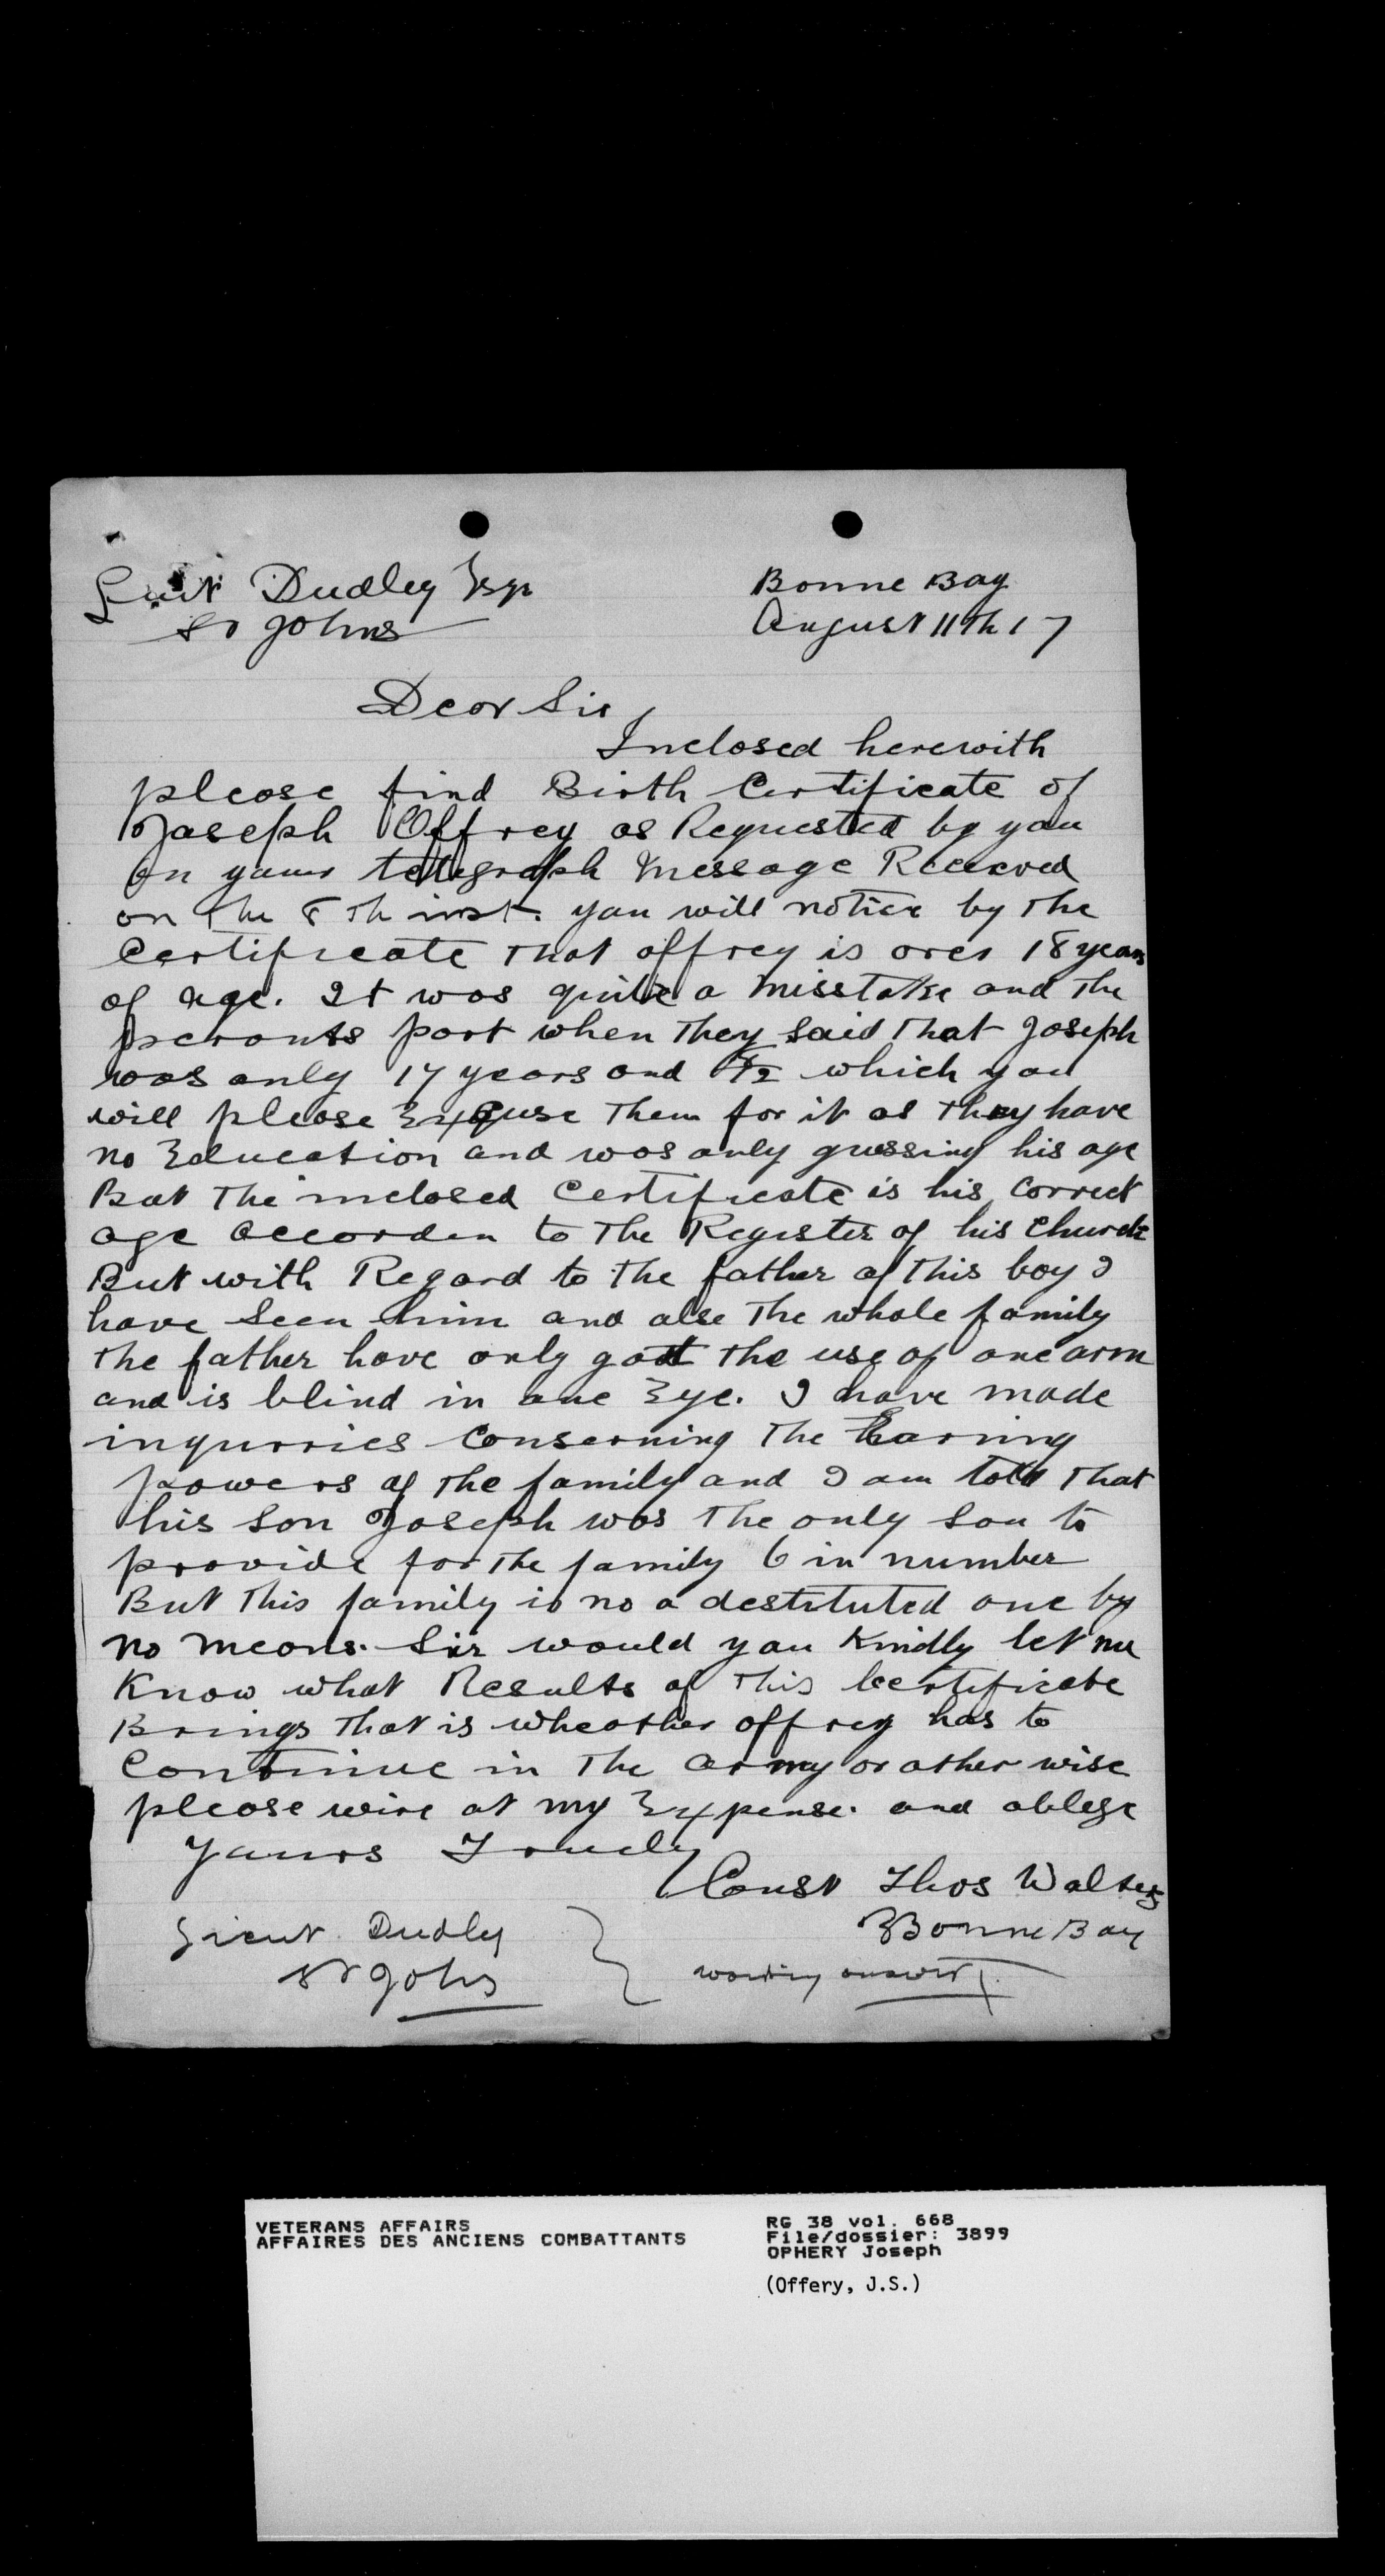 Lieut Dudley Esqr
St Johns
Bonne Bay
August 11th 17
Dear Sir,
Inclosed herewith
please find Birth Certificate of
Joseph Offrey as Requested by you
on yours telegraph Message Received
on the 8th inst. you will notice by the
Certificate that offrey is over 18 years
of age. It was quite a misstake and the
perants part when they said that Joseph
was only 17 years and 1/2 which you
will please Excuse them for it as they have
no Education and was only gussing his age
But the inclosed Certificate is his correct
age accorden to the Register of his Church
But with Regard to the father of this boy I
have seen him and also the whole family
the father have only gott the use of one arm
and is blind in one Eye. I have made
inqurries Conserning the Earning
powers of the family and I am told that
his son Joseph was the only son to
provide for the family 6 in number
But this family is no a destituted one by
no means. Sir would you kindly let me
Know what Results of this Certificate
Brings that is wheather offrey has to
Continue in the army or other wise
please wire at my Expense. and oblege
Yours Truely
Const Thos Walters
Bonne Bay
Lieut. Dudley
St Johs
waiting answer
VETERANS AFFAIRS
AFFAIRES DES ANCIENS COMBATTANTS
RG 38 vol. 668
File/dossier: 3899
OPHERY Joseph
(Offery, J.S.)